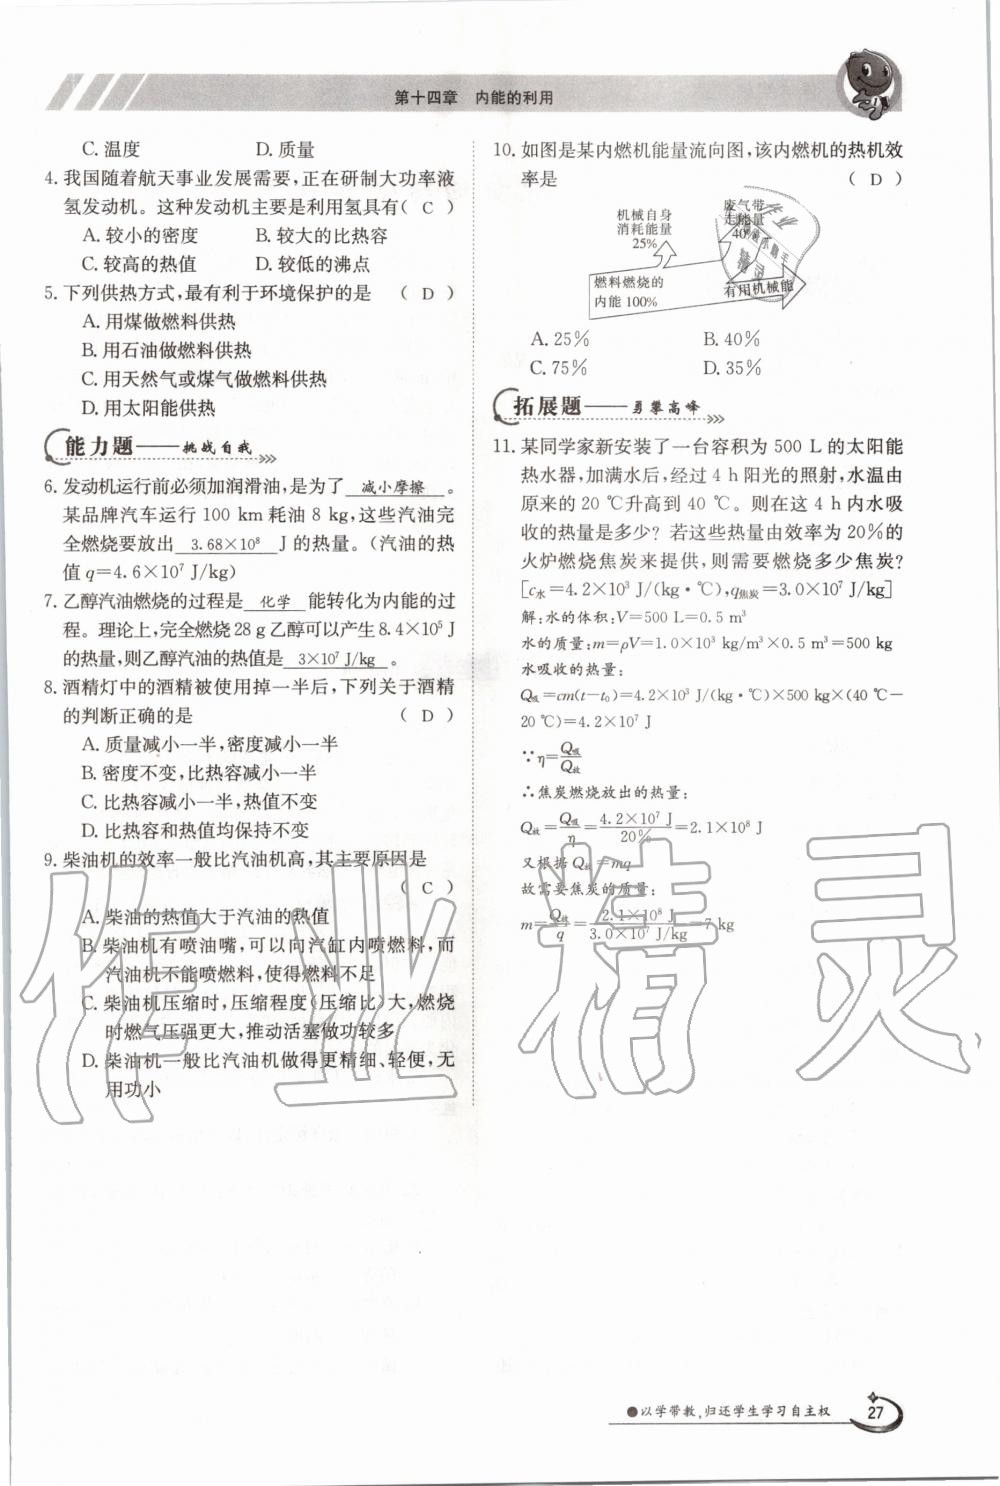 第十四章 内能的利用
C. 温度 D. 质量
4. 我国随着航天事业发展需要,正在研制大功率液
氢发动机。这种发动机主要是利用氢具有( C )
A. 较小的密度 B. 较大的比热容
C. 较高的热值 D. 较低的沸点
5. 下列供热方式,最有利于环境保护的是 ( D )
A. 用煤做燃料供热
B. 用石油做燃料供热
C. 用天然气或煤气做燃料供热
D. 用太阳能供热
能力题——挑战自我
6. 发动机运行前必须加润滑油,是为了 减小摩擦 。
某品牌汽车运行 100 km 耗油 8 kg,这些汽油完
全燃烧要放出 3.68×10⁸ J 的热量。(汽油的热
值 q=4.6×10⁷ J/kg)
7. 乙醇汽油燃烧的过程是 化学 能转化为内能的过
程。理论上,完全燃烧 28 g 乙醇可以产生 8.4×10⁵ J
的热量,则乙醇汽油的热值是 3×10⁷ J/kg 。
8. 酒精灯中的酒精被使用掉一半后,下列关于酒精
的判断正确的是 ( D )
A. 质量减小一半,密度减小一半
B. 密度不变,比热容减小一半
C. 比热容减小一半,热值不变
D. 比热容和热值均保持不变
9. 柴油机的效率一般比汽油机高,其主要原因是
( C )
A. 柴油的热值大于汽油的热值
B. 柴油机有喷油嘴,可以向汽缸内喷燃料,而
汽油机不能喷燃料,使得燃料不足
C. 柴油机压缩时,压缩程度(压缩比)大,燃烧
时燃气压强更大,推动活塞做功较多
D. 柴油机一般比汽油机做得更精细、轻便,无
用功小
10. 如图是某内燃机能量流向图,该内燃机的热机效
率是 ( D )
机械自身
消耗能量
25%
废气带
走能量
40%
燃料燃烧的
内能 100%
有用机械能
A. 25% B. 40%
C. 75% D. 35%
拓展题——勇攀高峰
11. 某同学家新安装了一台容积为 500 L 的太阳能
热水器,加满水后,经过 4 h 阳光的照射,水温由
原来的 20 ℃升高到 40 ℃。则在这 4 h 内水吸
收的热量是多少? 若这些热量由效率为 20%的
火炉燃烧焦炭来提供,则需要燃烧多少焦炭?
[c水=4.2×10³ J/(kg·℃),q焦炭=3.0×10⁷ J/kg]
解:水的体积:V=500 L=0.5 m³
水的质量:m=ρV=1.0×10³ kg/m³×0.5 m³=500 kg
水吸收的热量:
Q吸=cm(t-t₀)=4.2×10³ J/(kg·℃)×500 kg×(40 ℃-
20 ℃)=4.2×10⁷ J
∵η=Q吸/Q放
∴焦炭燃烧放出的热量:
Q放=Q吸/η=4.2×10⁷ J/20%=2.1×10⁸ J
又根据 Q放=mq
故需要焦炭的质量:
m=Q放/q=2.1×10⁸ J/3.0×10⁷ J/kg=7 kg
作业精灵
●以学带教,归还学生学习自主权
27